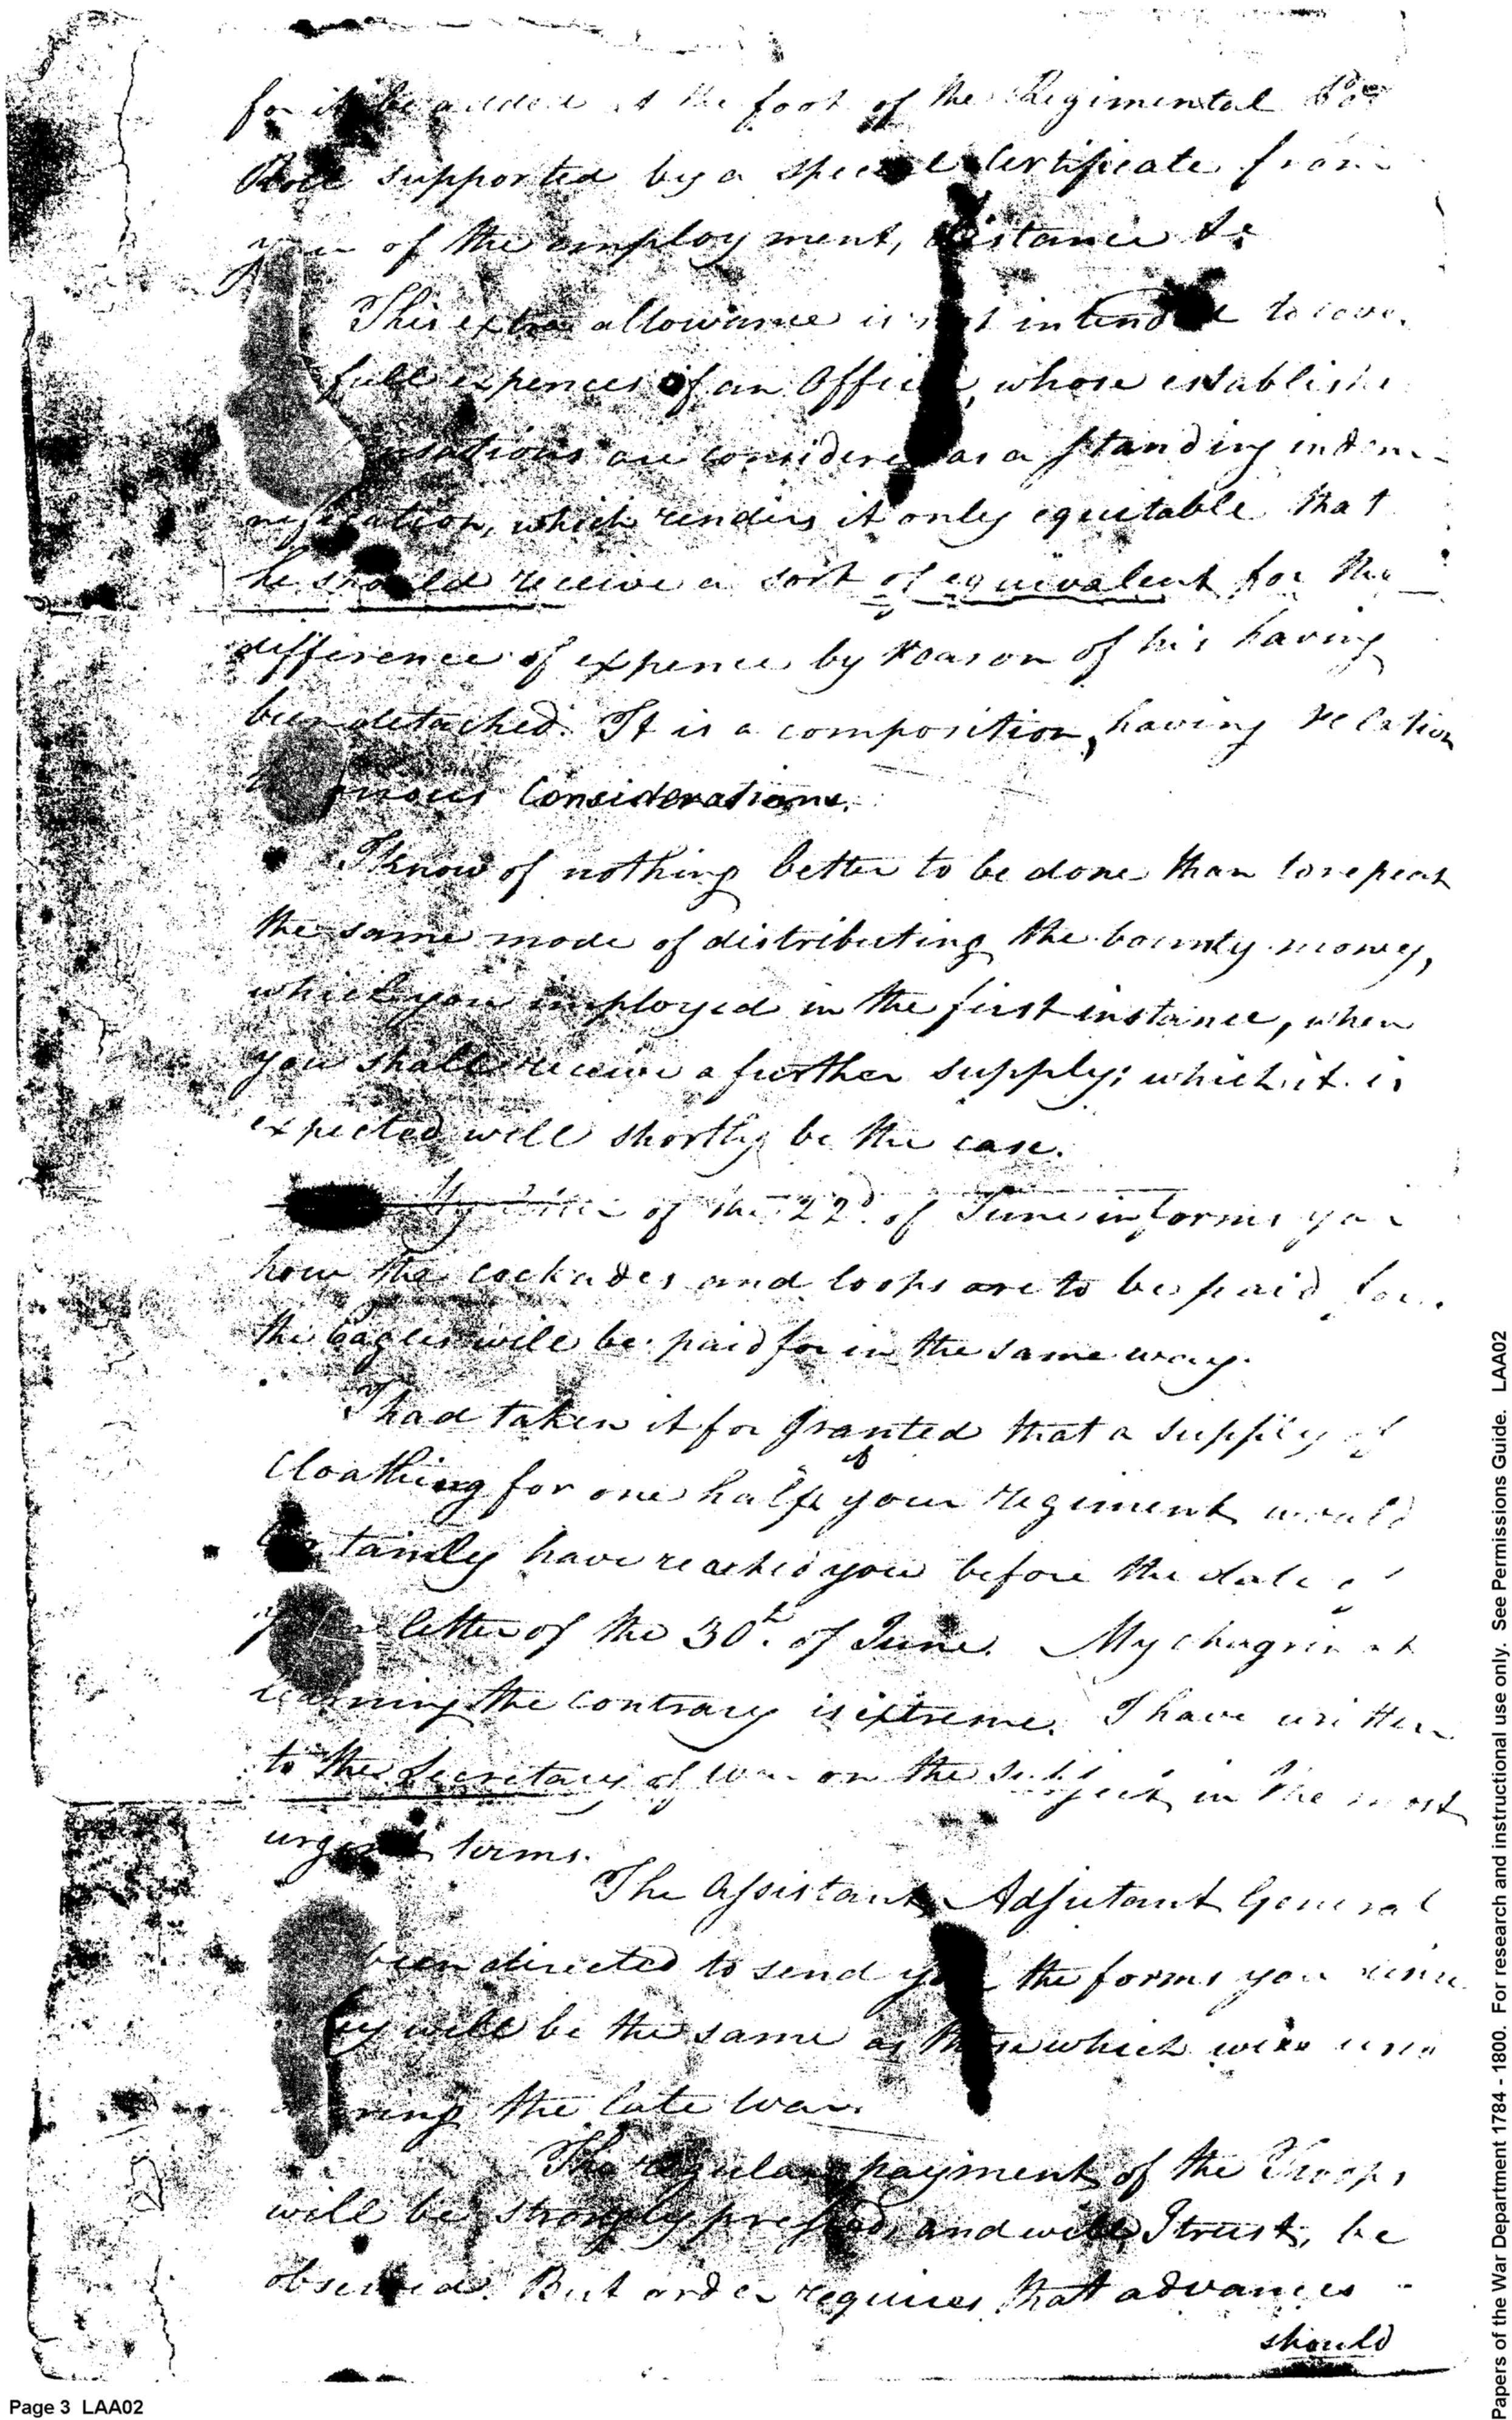 for it be added at the foot of the Regimental
Roll supported by a special Certificate from
your of the employment, distance &c
This extra allowance is not intended to cover
full expences of an Officer, whose establishe
nsations are considered as a standing indem-
nification, which renders it only equitable that
he should receive a sort of equivalent for the
difference of expence by reason of his having
been detached. It is a composition, having relation
to various Considerations.
I know of nothing better to be done than to repeat
the same mode of distributing the bounty money,
which you employed in the first instance, when
you shall receive a further supply; which it is
expected will shortly be the case.
My letter of the 22d. of June informs you
how the cockades and loops are to be paid for.
the Eagles will be paid for in the same way.
I had taken it for granted that a supply of
Cloathing for one half of your regiment would
certainly have reached you before the date of
your letter of the 30th. of June. My chagrin at
learning the contrary is extreme. I have written
to the Secretary of War on the subject, in the most
urgent terms.
The Assistant Adjutant General
been directed to send you the forms you
ey will be the same as those which were
ring the late War.
The regular payment of the Troops
will be strongly pressed, and will, I trust, be
observed. But order requires that advances
should
Page 3 LAA02
Papers of the War Department 1784 - 1800. For research and instructional use only. See Permissions Guide. LAA02